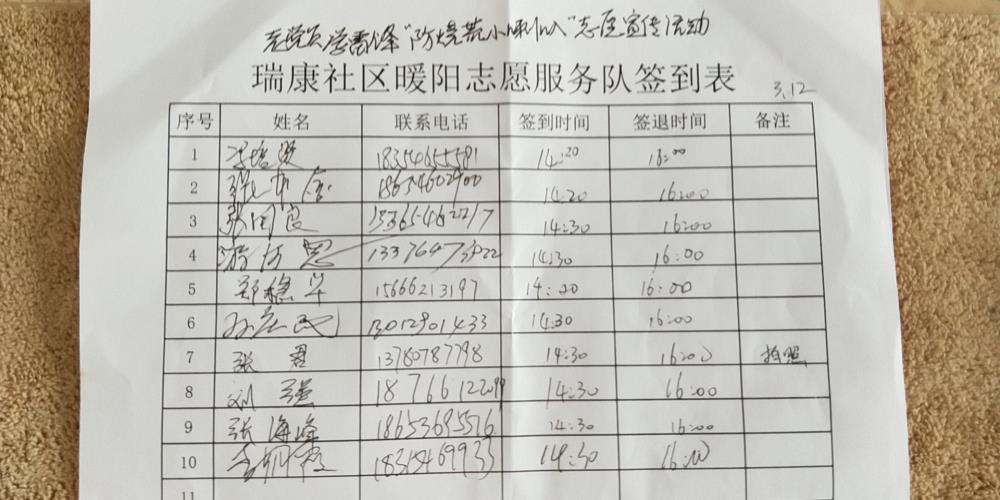 老党员学雷锋"防烧荒小喇叭"志愿宣传活动
瑞康社区暖阳志愿服务队签到表
3.12
序号 姓名 联系电话 签到时间 签退时间 备注
1 18354655581 14:20 16:00
2 18654602900 14:20 16:00
3 张国良 14:30 16:00
4 14:30 16:00
5 郑穗华 15666213197 14:00 16:00
6 13012901433 14:30 16:00
7 张君 13780787798 14:30 16:00 拍照
8 刘强 18766122099 14:30 16:00
9 张海峰 18653695516 14:30 16:00
10 14:30 16:00
11